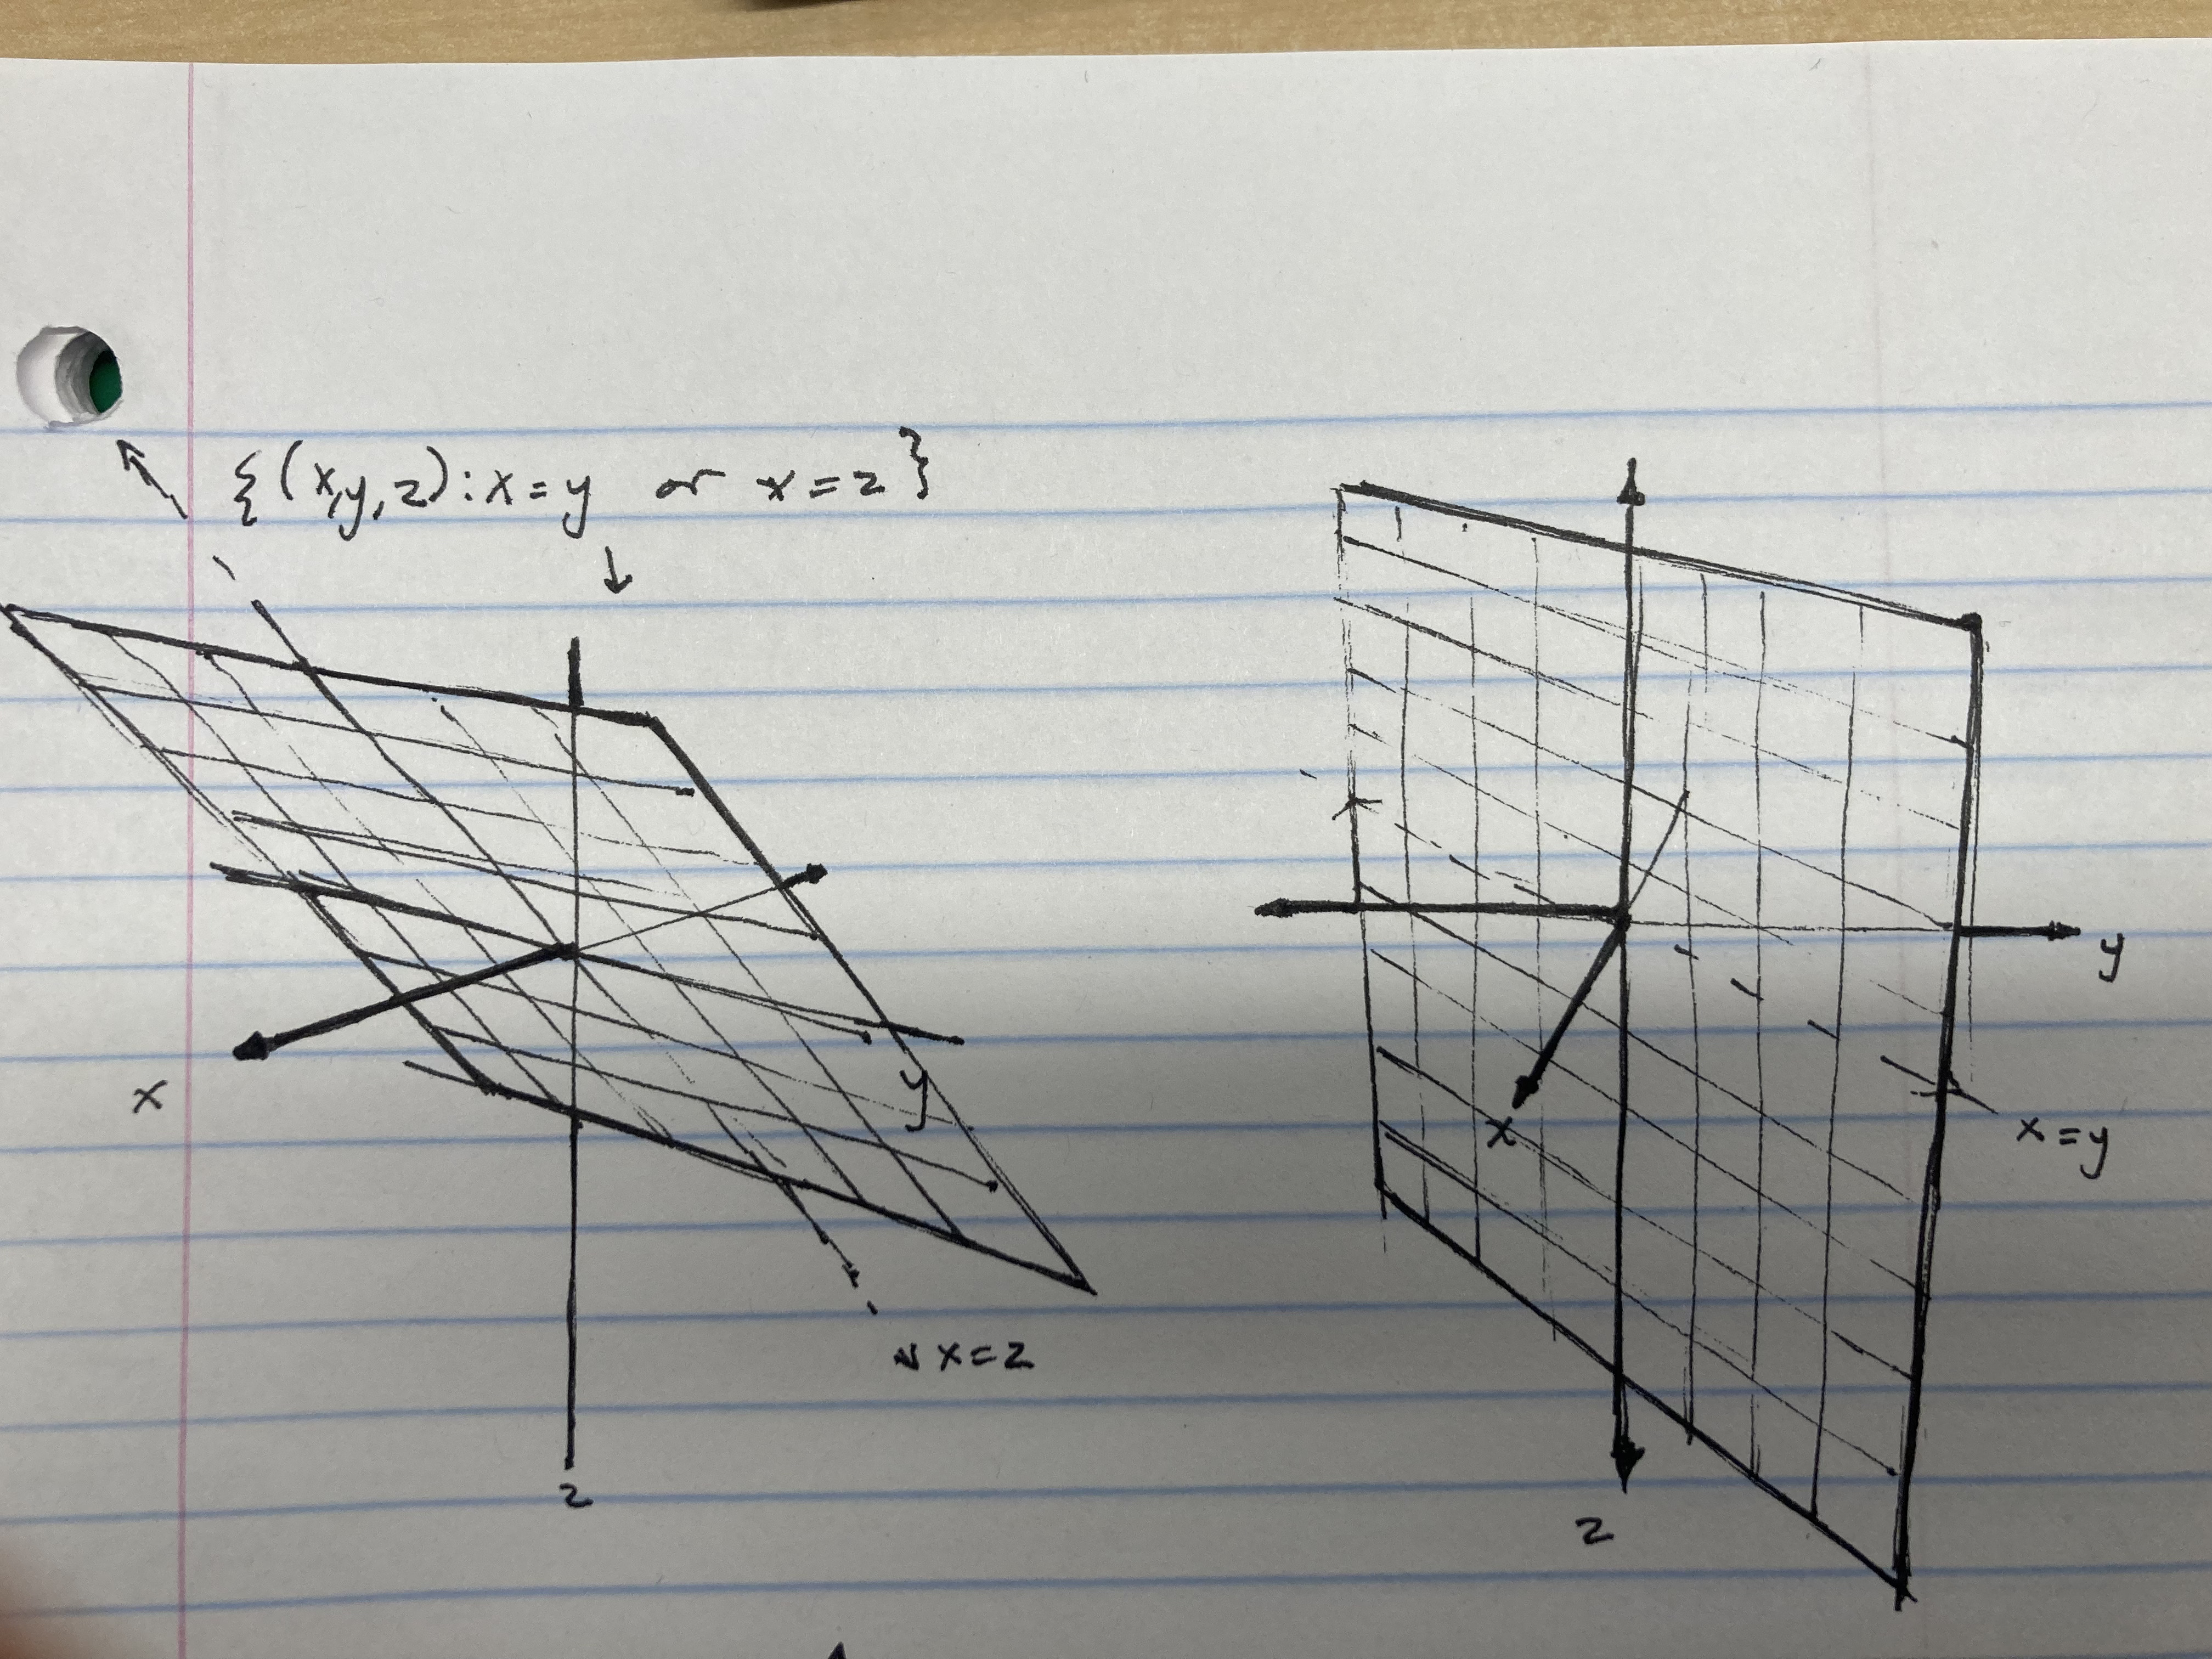 {(x,y,z):x=y or x=z}
x
y
z
x=z
y
x
x=y
z